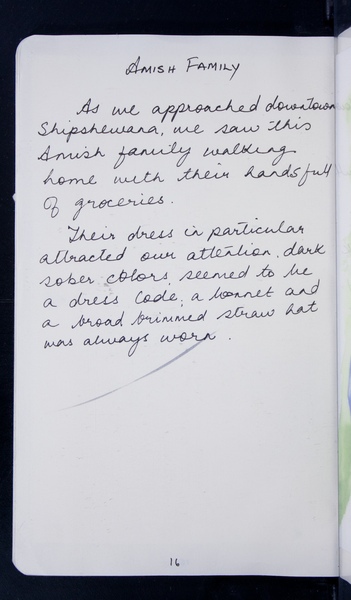 AMISH FAMILY
As we approached downtown
Shipshewana, we saw this
Amish family walking
home with their hands full
of groceries.
Their dress in particular
attracted our attention, dark
sober colors seemed to be
a dress code; a bonnet and
a broad brimmed straw hat
was always worn.
16